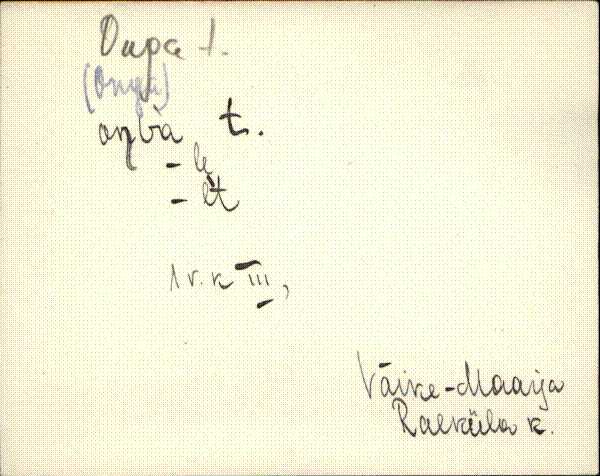 Onga t.
(Onga)
oŋ̀ga t.
- le
- lt
1 v. k III,
Väike-Maarja
Raeküla k.